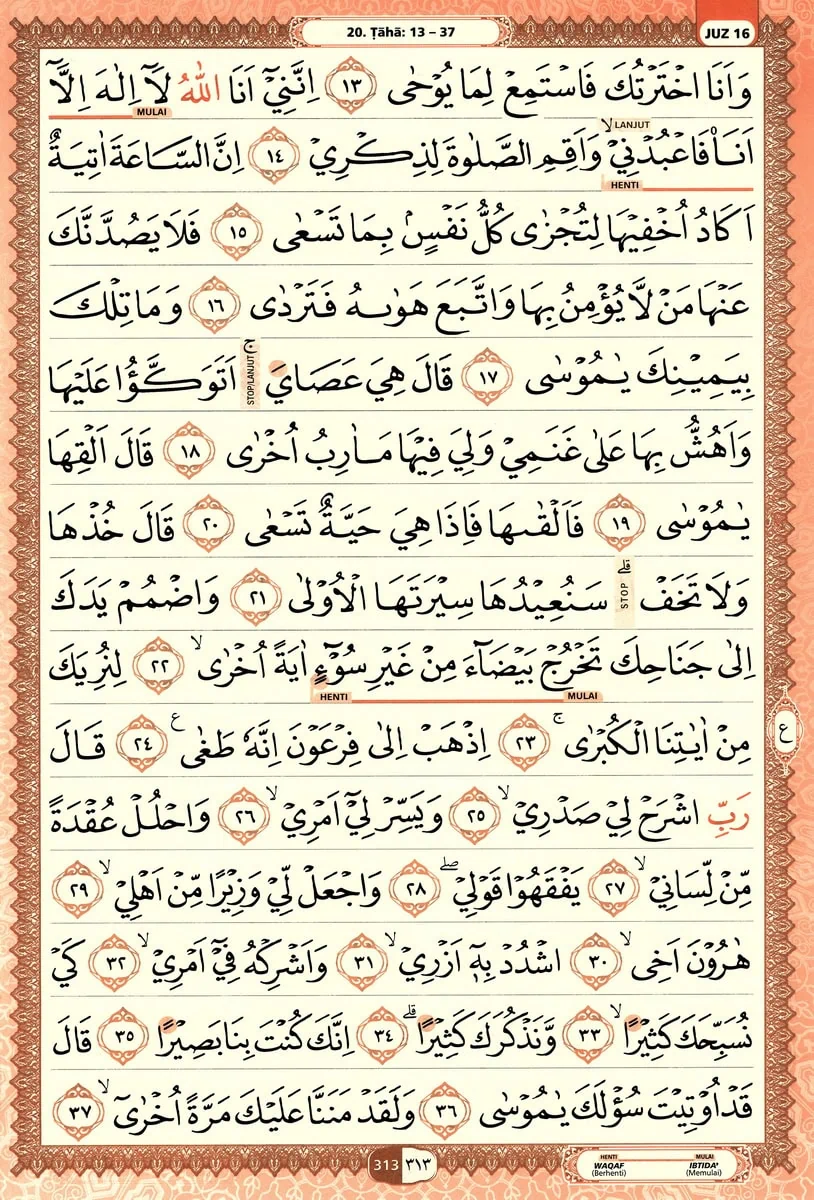 20. Ṭāhā: 13 – 37
JUZ 16
وَاَنَا اخْتَرْتُكَ فَاسْتَمِعْ لِمَا يُوْحٰى ١٣ اِنَّنِيْٓ اَنَا اللّٰهُ لَآ اِلٰهَ اِلَّآ
MULAI
لا LANJUT
اَنَا۠ فَاعْبُدْنِيْ وَاَقِمِ الصَّلٰوةَ لِذِكْرِيْ ١٤ اِنَّ السَّاعَةَ اٰتِيَةٌ
HENTI
اَكَادُ اُخْفِيْهَا لِتُجْزٰى كُلُّ نَفْسٍۢ بِمَا تَسْعٰى ١٥ فَلَا يَصُدَّنَّكَ
عَنْهَا مَنْ لَّا يُؤْمِنُ بِهَا وَاتَّبَعَ هَوٰىهُ فَتَرْدٰى ١٦ وَمَا تِلْكَ
بِيَمِيْنِكَ يٰمُوْسٰى ١٧ قَالَ هِيَ عَصَايَ ۚ STOP/LANJUT اَتَوَكَّؤُا عَلَيْهَا
وَاَهُشُّ بِهَا عَلٰى غَنَمِيْ وَلِيَ فِيْهَا مَاٰرِبُ اُخْرٰى ١٨ قَالَ اَلْقِهَا
يٰمُوْسٰى ١٩ فَاَلْقٰىهَا فَاِذَا هِيَ حَيَّةٌ تَسْعٰى ٢٠ قَالَ خُذْهَا
وَلَا تَخَفْ ۗ STOP سَنُعِيْدُهَا سِيْرَتَهَا الْاُوْلٰى ٢١ وَاضْمُمْ يَدَكَ
اِلٰى جَنَاحِكَ تَخْرُجْ بَيْضَاۤءَ مِنْ غَيْرِ سُوْۤءٍ اٰيَةً اُخْرٰى ۙ ٢٢ لِنُرِيَكَ
MULAI HENTI
مِنْ اٰيٰتِنَا الْكُبْرٰى ۚ ٢٣ اِذْهَبْ اِلٰى فِرْعَوْنَ اِنَّهٗ طَغٰى ࣖ ٢٤ قَالَ
ع
رَبِّ اشْرَحْ لِيْ صَدْرِيْ ۙ ٢٥ وَيَسِّرْ لِيْٓ اَمْرِيْ ۙ ٢٦ وَاحْلُلْ عُقْدَةً
مِّنْ لِّسَانِيْ ۙ ٢٧ يَفْقَهُوْا قَوْلِيْ ۖ ٢٨ وَاجْعَلْ لِّيْ وَزِيْرًا مِّنْ اَهْلِيْ ۙ ٢٩
هٰرُوْنَ اَخِى ۙ ٣٠ اشْدُدْ بِهٖٓ اَزْرِيْ ۙ ٣١ وَاَشْرِكْهُ فِيْٓ اَمْرِيْ ۙ ٣٢ كَيْ
نُسَبِّحَكَ كَثِيْرًا ۙ ٣٣ وَّنَذْكُرَكَ كَثِيْرًا ۗ ٣٤ اِنَّكَ كُنْتَ بِنَا بَصِيْرًا ٣٥ قَالَ
قَدْ اُوْتِيْتَ سُؤْلَكَ يٰمُوْسٰى ٣٦ وَلَقَدْ مَنَنَّا عَلَيْكَ مَرَّةً اُخْرٰىٓ ۙ ٣٧
313 ٣١٣
HENTI MULAI
WAQAF IBTIDA'
(Berhenti) (Memulai)